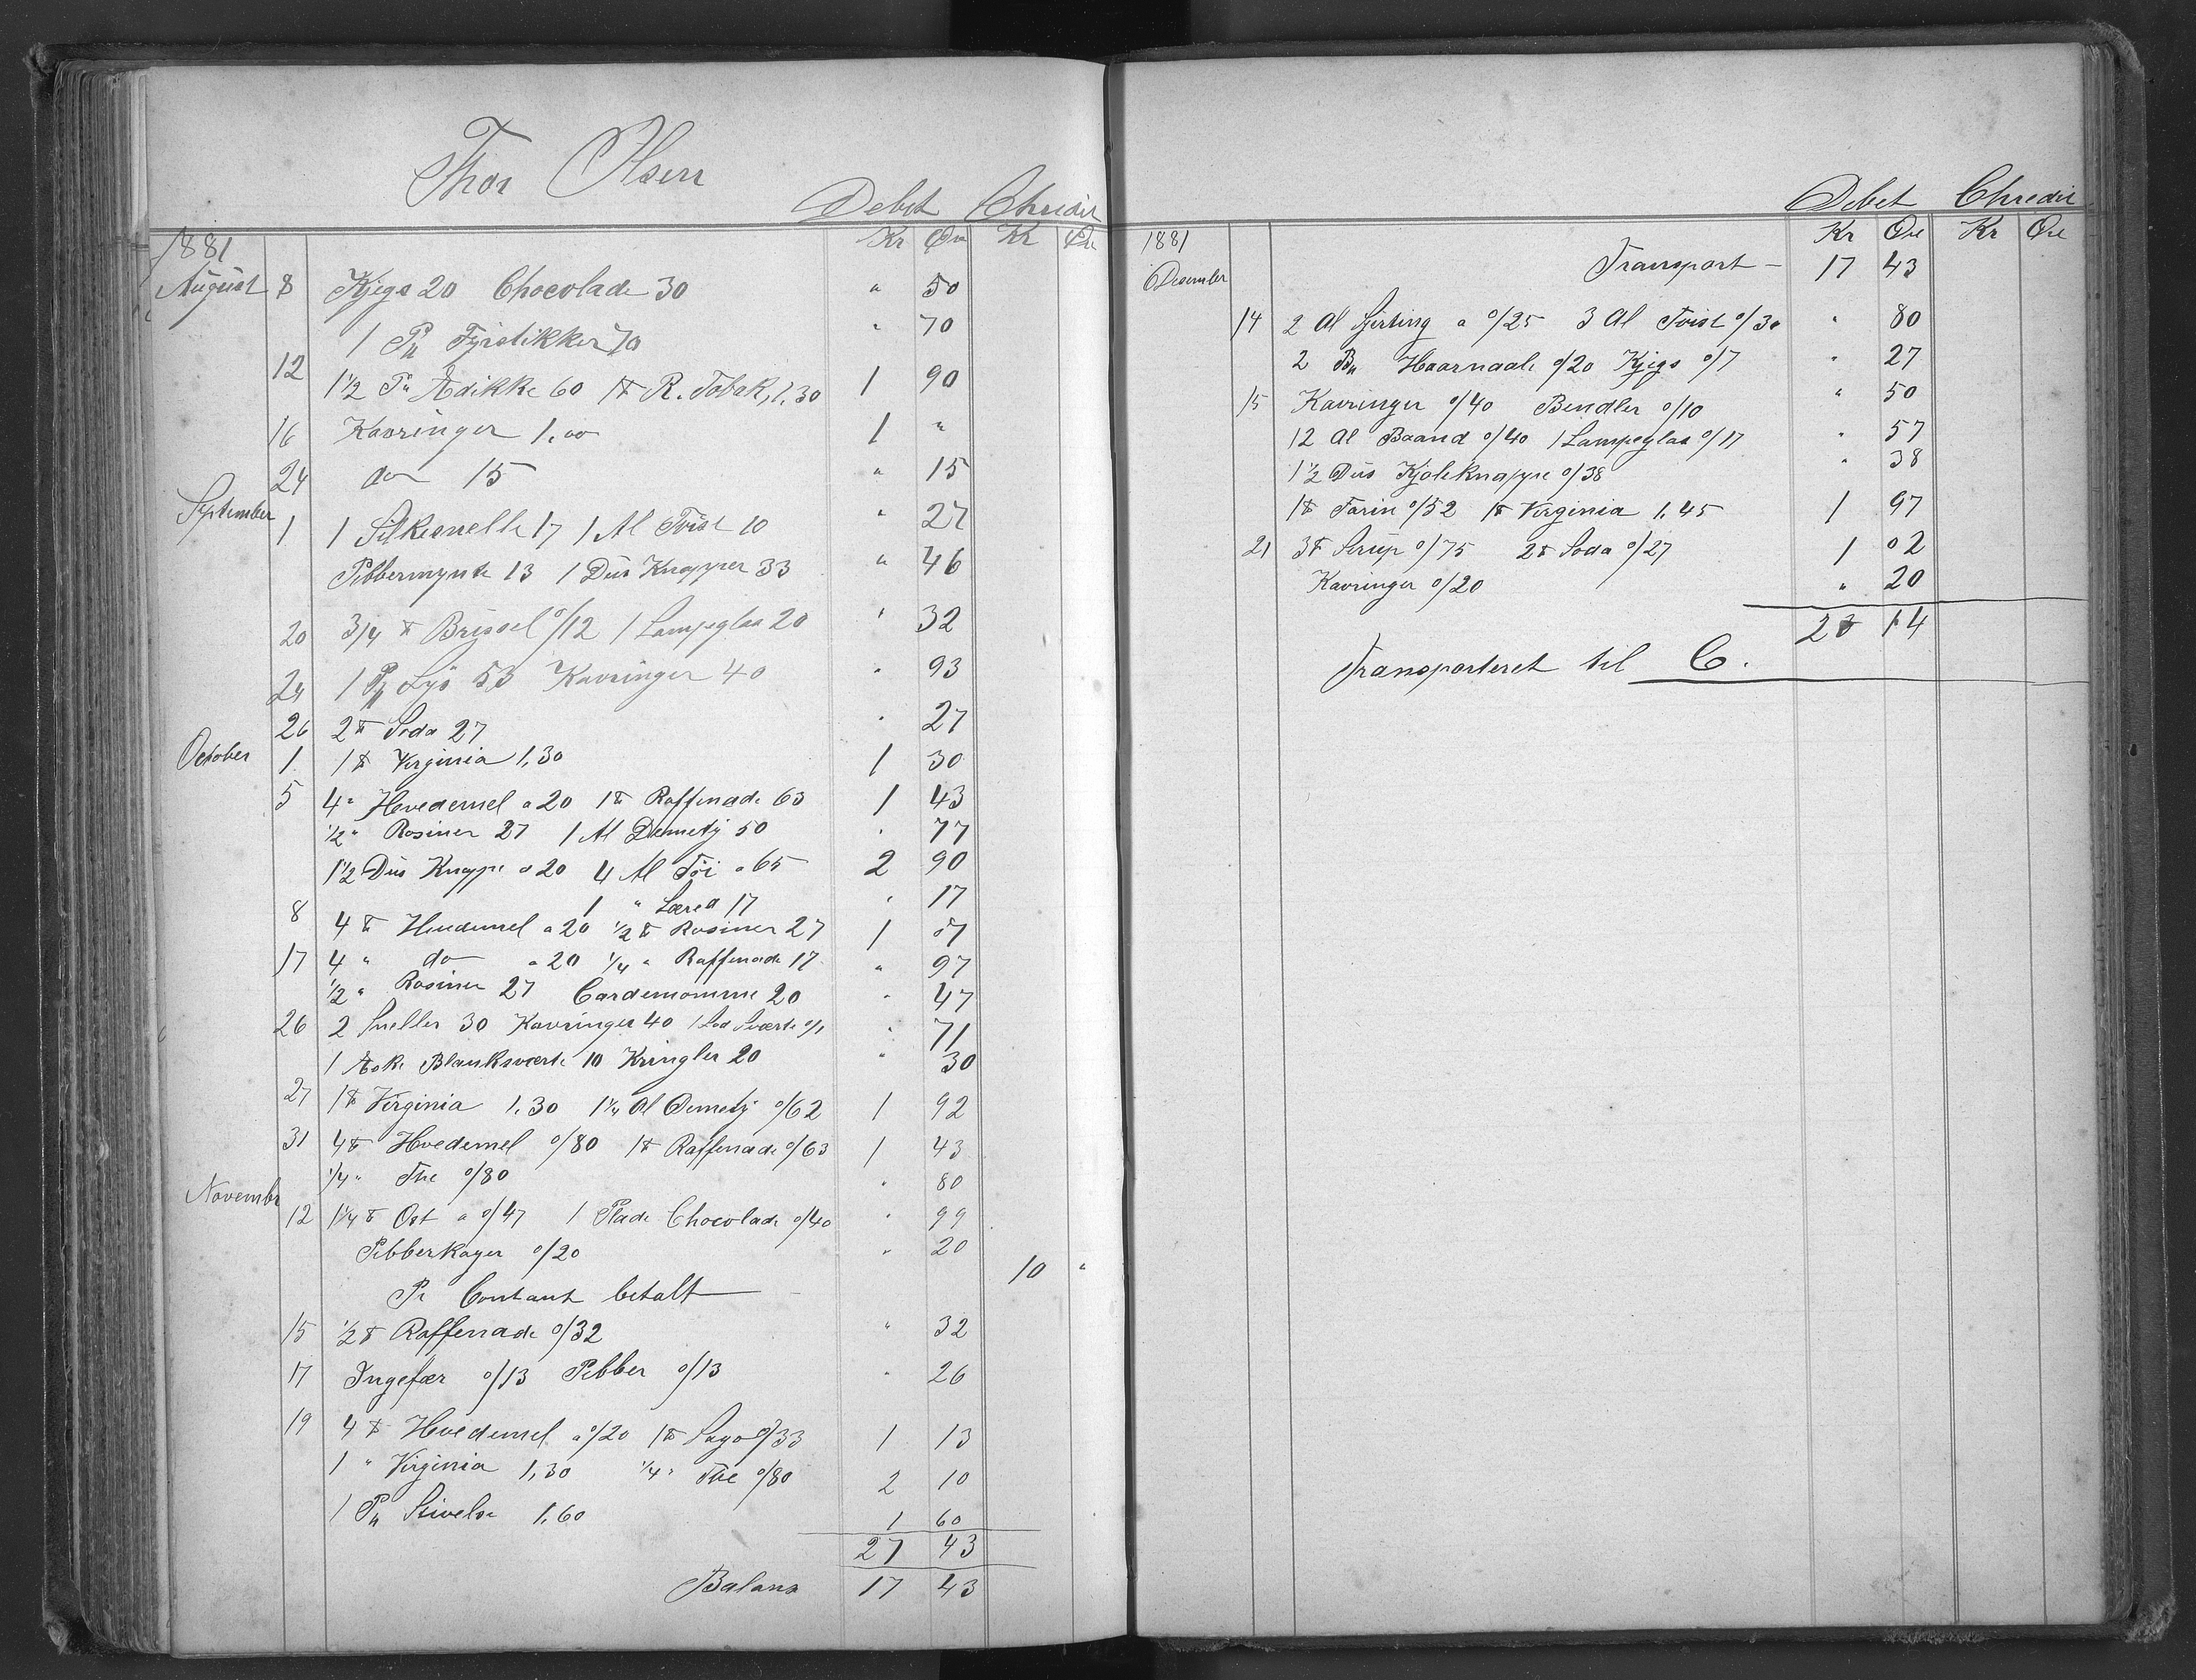 Thor Olsen
Debet Chredit
1881 Kr Øre Kr Øre
August 8 Kjegs 20 Chocolade 30 " 50
1 Pk Fyrstikker 70 " 70
12 1 1/2 Pk Ædikke 60 1 ℔ R. Tobak, 1.30 1 90
16 Kavringer 1.00 1 "
24 do 15 " 15
September 1 1 Silkesnelle 17 1 Al Tvist 10 " 27
Pibbermynte 13 1 Dus Knapper 33 " 46
20 3/4 ℔ Brissel 0/12 1 Lampeglas 20 " 32
24 1 Pk Lys 53 Kavringer 40 " 93
26 2 ℔ Soda 27 " 27
October 1 1 ℔ Virginia 1,30 1 30
5 4 " Hvedemel a 20 1 ℔ Raffenade 63 1 43
1/2 " Rosiner 27 1 Al Demety 50 " 77
1 1/2 Dus Knappe a 20 4 Al Töi a 65 2 90
1 " Læred 17 " 17
8 4 ℔ Hvedemel a 20 1/2 ℔ Rosiner 27 1 07
17 4 " do a 20 1/4 " Raffenade 17 " 97
1/2 " Rosiner 27 Cardemomme 20 " 47
26 2 Sneller 30 Kavringer 40 1 Lod Sværte 0/1 " 71
1 Æske Blanksværte 10 Kringler 20 " 30
27 1 ℔ Virginia 1,30 1 1/4 Al Demety 0/62 1 92
31 4 ℔ Hvedemel 0/80 1 ℔ Raffenade 0/63 1 43
1/4 " The 0/80 " 80
Novembr
12 1 1/4 ℔ Ost a 0/47 1 Plade Chocolade 0/40 " 99
Pibberkager 0/20 " 20
Pr Contant betalt 10 "
15 1/2 ℔ Raffenade 0/32 " 32
17 Ingefær 0/13 Pibber 0/13 " 26
19 4 ℔ Hvedemel a 0/20 1 ℔ Sago 0/33 1 13
1 " Virginia 1,30 1/4 " The 0/80 2 10
1 Pk Stivelse 1,60 1 60
27 43
Balans 17 43
Debet Chredit
1881 Kr Øre Kr Øre
Desember Transport 17 43
14 2 Al Sjerting a 0/25 3 Al Tvist 0/30 " 80
2 Bu Haarnaale 0/20 Kjegs 0/7 " 27
15 Kavringer 0/40 Bendler 0/10 " 50
12 Al Baand 0/40 1 Lampeglas 0/17 " 57
1 1/2 Dus Kjoleknappe 0/38 " 38
1 ℔ Farin 0/52 1 ℔ Virginia 1.45 1 97
21 3 ℔ Sirup 0/75 2 ℔ Soda 0/27 1 02
Kavringer 0/20 " 20
23 14
Transporteret til C.